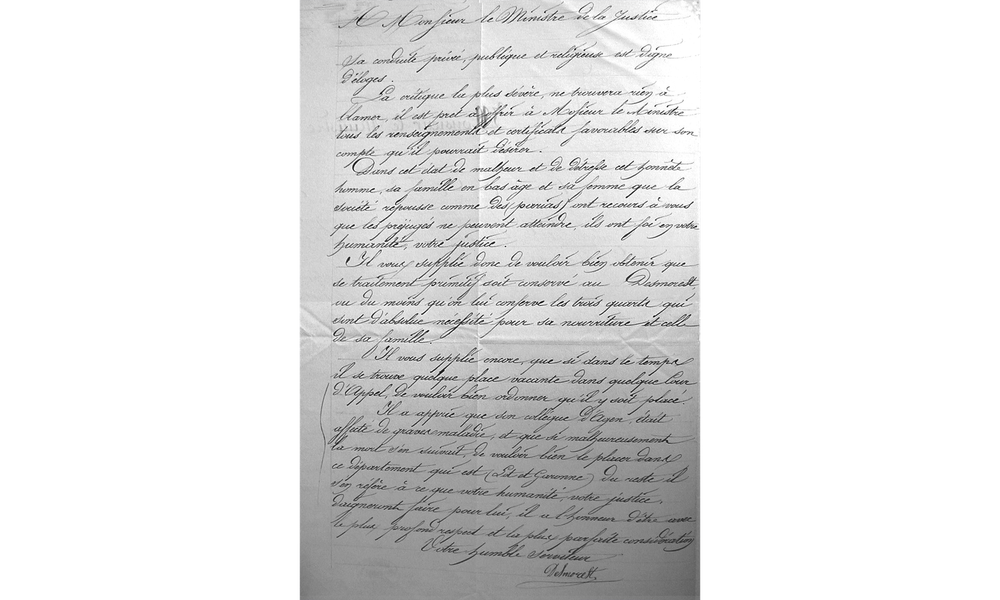 A Monsieur le Ministre de la Justice
Sa conduite privée, publique et religieuse est digne
d'éloges.
La critique la plus sévère, ne trouvera rien à
blamer, il est pret à offrir à Monsieur le Ministre
tous les renseignements et certificats favorables sur son
compte qu'il pourrait désirer.
Dans cet état de malheur et de détresse cet honnête
homme, sa famille en bas âge et sa femme que la
société repousse comme des (parias) ont recours à vous
que les préjugés ne peuvent atteindre, ils ont foi en votre
humanité, votre justice.
Il vous supplie donc de vouloir bien obtenir que
se traitement primitif soit conservé au Desmorest,
ou du moins qu'on lui conserve les trois quarts qui
sont d'absolue nécessité pour sa nourriture et celle
de sa famille.
Il vous supplie encore, que si dans le temps
il se trouve quelque place vacante dans quelque Cour
d'Appel, de vouloir bien ordonner qu'il y soit placé
Il a apprie que son collègue d'Agen, était
affecté de graves maladie, et que si malheureusement
la mort s'en suivait, de vouloir bien le placer dans
ce département qui est (Lot et Garonne) du reste il
s'en réfère à ce que votre humanité, votre justice,
daigneront faire pour lui, il a l'honneur d'être avec
le plus profond respect et la plus parfaite considération
Votre humble serviteur
Desmorest.